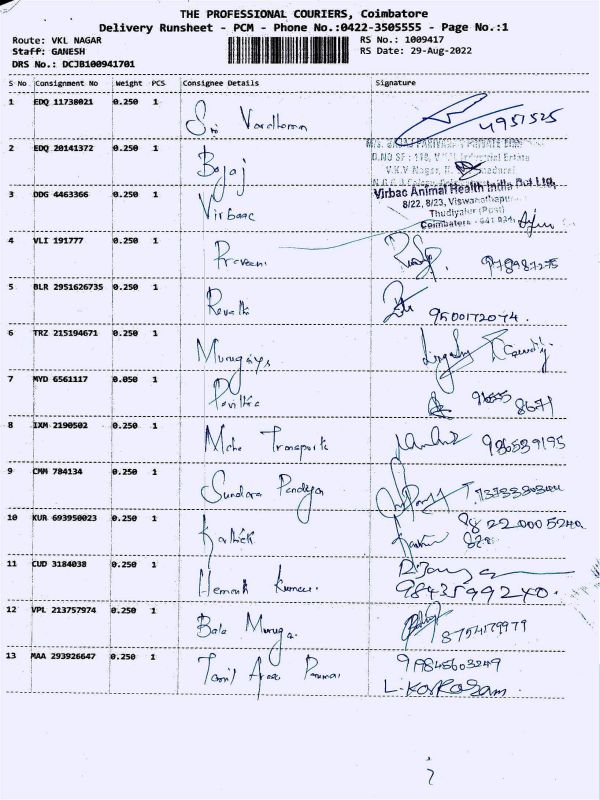 THE PROFESSIONAL COURIERS, Coimbatore
Delivery Runsheet - PCM - Phone No.:0422-3505555 - Page No.:1
Route: VKL NAGAR
RS No.: 1009417
Staff: GANESH
RS Date: 29-Aug-2022
DRS No.: DCJB100941701
S No Consignment No Weight PCS Consignee Details Signature
1 EDQ 11738021 0.250 1
Sri Vardhaman
4951525
2 EDQ 20141372 0.250 1
Bajaj
D.NO SF : 118, Industrial Estate
V.K.V Nagar,
3 DDG 4463366 0.250 1
Virbaac
Virbac Animal Health India Pvt Ltd,
8/22, 8/23, Viswanathapur
Thudiyaler (Post)
Coimbatore - 641 034
4 VLI 191777 0.250 1
Praveen
978987275
5 BLR 2951626735 0.250 1
Revathi
9500172074.
6 TRZ 215194671 0.250 1
Murugaiya
7 MYD 6561117 0.050 1
Pavithra
96555
8671
8 IXM 2190502 0.250 1
Maha Transports
986539195
9 CMM 784134 0.250 1
Sundara Pandiyan
10 KUR 693950023 0.250 1
Karthick
88220005240
11 CUD 3184038 0.250 1
Hemanth Kumar.
9843599240.
12 VPL 213757974 0.250 1
Bala Muruga.
8754579979
13 MAA 293926647 0.250 1
Tamil Arasa Perumal
919845603249